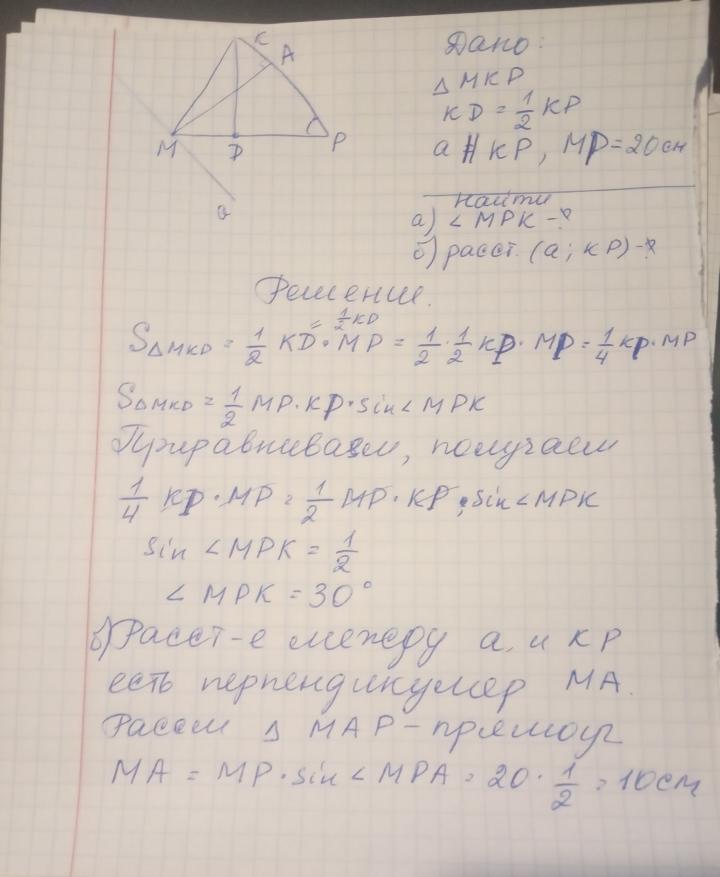 K
A
M
D
P
a
Дано:
△ MKP
KD = 1/2 KP
a ∥ KP, MP = 20 см
Найти
а) ∠ MPK - ?
б) расст. (a; KP) - ?
Решение.
= 1/2 KD
S△MKD = 1/2 KD · MP = 1/2 · 1/2 KP · MP = 1/4 KP · MP
S△MKD = 1/2 MP · KP · sin ∠ MPK
Приравниваем, получаем
1/4 KP · MP = 1/2 MP · KP · sin ∠ MPK
sin ∠ MPK = 1/2
∠ MPK = 30°
б) Расст-е между a и KP
есть перпендикуляр MA.
Рассм △ MAP - прямоуг
MA = MP · sin ∠ MPA = 20 · 1/2 = 10 см